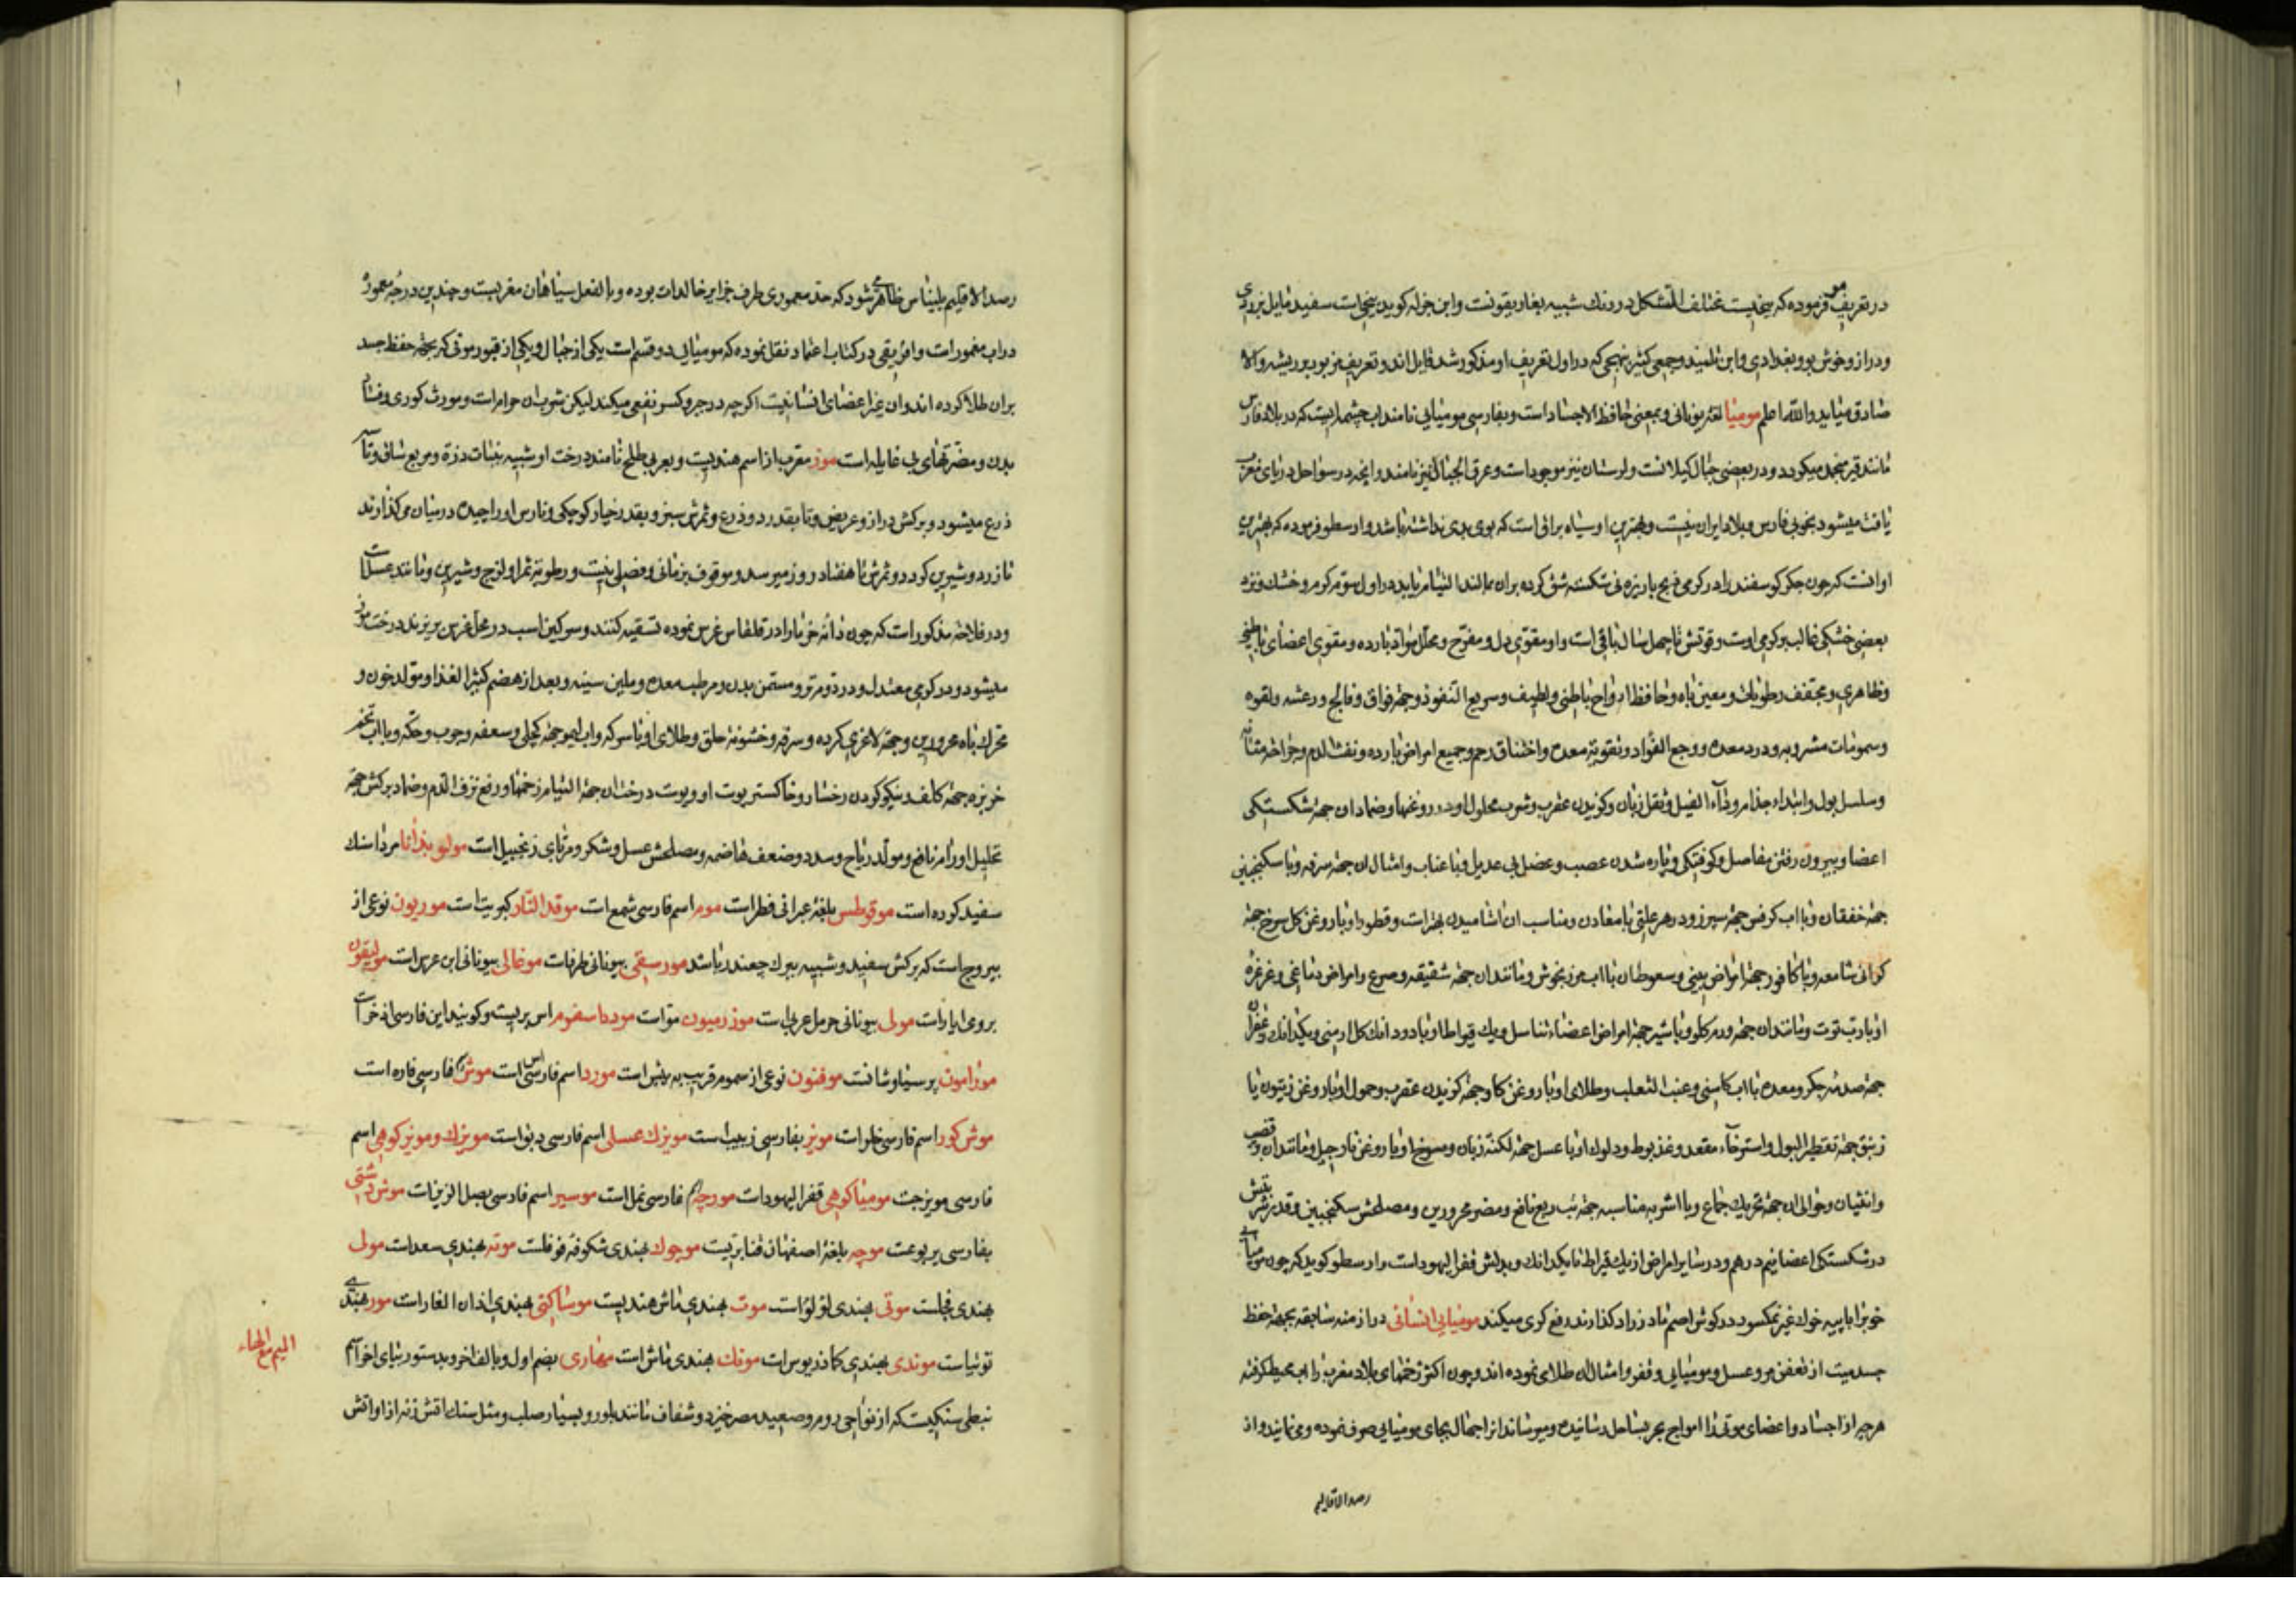 در تعریف مو فرموده که بیخیست مختلف الشکل و رنک شبیه بغاریقونست و ابن جزله کوید بیخیست سفید مایل بزردی
و دراز و خوش بو و بغدادی و ابن تلمیذ و جمعی کثیر بنهجی که در اول تعریف او مذکور شد قایل‌اند و تعریف مزبور بر ریشه والا
صادق میاید والله اعلم مومیا لغة یونانی و بمعنی حافظ الاجساد است و بفارسی مومیایی نامند اب چشمه ایست که در بلاد فارس
مانند قیر منجمد میکردد و در بعضی جبال کیلانست و لرستان نیز موجود است و عرق الجبال نیز نامند و انچه در سواحل دریای مغرب
یافت میشود بخوبی فارس و بلاد ایران نیست و بهترین او سیاه براقی است که بوی بدی نداشته باشد و ارسطو فرموده که بهترین
او انست که چون جکر کوسفند را در کرمی ذبح بارنیزه نی شکسته شق کرده بران بمالند التیام یابد در اول سوم کرم و خشک و نزد
بعضی خشکی غالب بر کرمی اوست و قوتش تا چهل سال باقی است و او مقوی دل و مفرح و محلل مواد بارده و مقوی اعضای باطنی
و ظاهری و مجفف رطوبات و معین باه و حافظ ارواح باطنی و لطیف و سریع النفوذ و جهة فواق و فالج و رعشه و لقوه
و سمومات مشروبه و درد معده و وجع الفؤاد و تقویة معده و اختناق رحم و جمیع امراض بارده و نفث الدم و جراحة مثانه
و سلسل بول و ابتداء جذام و داء الفیل و ثقل زبان و کزیدن عقرب و شرب محلول او در روغنها و ضماد ان جهة شکستکی
اعضا و بیرون رفتن مفاصل و کوفتکی و پاره شدن عصب و عضل بی عدیل و با عناب و امثال ان جهة سرفه و با سکنجبین
جهة خفقان و با اب کرفس جهة سپرز و در هر علتی با معادن و مناسب ان اشامیدن بهتر است و قطور او با روغن کل سرخ جهة
کرانی سامعه و با کافور جهة امراض بینی و سعوط ان با اب مرزنجوش و مانند ان جهة شقیقه و صرع و امراض دماغی و غرغرهٔ
او با رب توت و مانند ان جهة ورم کلو و با شیر جهة امراض اعضاء تناسل و یک قیراط او با دو دانک کل ارمنی و یکدانک زعفران
جهة صدمه جکر و معده با اب کاسنی و عنب الثعلب و طلای او با روغن کاو جهة کزیدن عقرب و حمول او با روغن زیتون یا
زنبق جهة تقطیر البول و استرخاء مقعد و غذیوط و دلوک او با عسل جهة لکنة زبان و مسوح او با روغن نارجیل و مانند ان بر قضیب
و انثیان و حوالی ان جهة تحریک جماع و با اشربه مناسبه جهة تب ربع نافع و مضر محرورین و مصلحش سکنجبین و قدر شربتش
در شکستکی اعضا نیم درهم و در سایر امراض از یک قیراط تا یکدانک و بدلش قفر الیهود است و ارسطو کوید که چون مومیای
خوب را با پیه خوک غیر نمکسود در کوش اصم مادرزاد کذارند رفع کری میکند مومیایی انسانی در ازمنه سابقه بجهة حفظ
جسد میت از تعفن مر و عسل و مومیایی و قفر و امثال ان طلای نموده اند و چون اکثر زخمهای بلاد مغرب را اب محیط کرفته
هرچه از اجساد و اعضای موتی را امواج بحر بساحل رسانیده و میرساند انرا جهال بجای مومیایی صرف نموده و می نمایند و از
رصد الاقالیم
رصد الاقالیم بلیناس ظاهر می شود که حد معموری طرف جزایر خالدات بوده و بالفعل سیاهان مغربیست و چندین درجه معموره
در اب مغمور است و افریقی در کتاب اعتماد نقل نموده که مومیایی دو قسم است یکی از جبال و یکی از قبور موتی که بجهة حفظ جسد
بران طلا کرده اند و ان غیر اعضای انسانیست اکرچه در جبر و کسر نفعی میکند لیکن شرب ان حرام است و مورث کوری و فساد
بدن و مضرتهای بی غایله است موز معرب از اسم هندیست و بعربی طلح نامند درخت او شبیه بنبات ذرة و مربع ساق و تا سه
ذرع میشود و برکش دراز و عریض و تا بقدر دو ذرع و ثمرش سبز و بقدر خیار کوچکی و نارس او را چیده در میان میکذارند
تا زرد و شیرین کردد و ثمرش تا هفتاد روز میرسد و موقوف بزمانی و فصلی نیست و رطوبة ثمر او لزج و شیرین و مانند عسل است
و در فلاحة مذکور است که چون دانه خرما را در قلقاس غرس نموده تسقیه کنند و سرکین اسب در محل غرس بریزند درخت موز
میشود و در کرمی معتدل و در دوم تر و مسمن بدن و مرطب معده و ملین سینه و بعد از هضم کثیر الغذا و مولد خون و
محرک باه محرورین و جهة لاغری کرده و سرفه و خشونة حلق و طلای او با سرکه و اب لیمو جهة کچلی و سعفه و جرب و حکه و با اب تخم
خربزه جهة کلف و نیکو کردن رخسار و خاکستر پوست او و پوست درخت ان جهة التیام زخمها و رفع نزف الدم و ضماد برکش جهة
تحلیل اورام نافع و مولد ریاح و سدد و ضعف هاضمه و مصلحش عسل و شکر و مربای زنجبیل است مولوبدانا مرداسنک
سفید کرده است موقوطس بلغة عبرانی فطر است موم اسم فارسی شمع است موقد النار کبریت است موریون نوعی از
یبروج است که برکش سفید و شبیه ببرک چغندر باشد مورسقی بیونانی طرفاست موغالی بیونانی ابن عرس است مولیقون
برومی ابار است مولی بیونانی حرمل عربی است موزرمیون مو است مورداسفرم اس بریست و کویند این فارسی اذخر است
مورامون پرسیاوشانست موفنون نوعی از سموم قریب به بیش است مورد اسم فارسی اس است موش فارسی فاره است
موش کور اسم فارسی خلد است مویز بفارسی زبیب است مویزک عسلی اسم فارسی دبق است مویزک و مویز کوهی اسم
فارسی مویزجست مومیا کوهی قفر الیهود است مورچه فارسی نمل است موسیر اسم فارسی بصل الزیز است موش دشتی
بفارسی یربوعست موچه بلغة اصفهان قنابریست موچوک بهندی شکوفه فوفلست موته بهندی سعد است مولی
بهندی فجلست موتی بهندی لؤلؤ است موت بهندی ماش هندیست موساکنی بهندی اذان الفار است مور بهندی
توتیاست موندی بهندی کماذریوس است مونک بهندی ماش است مهاری بضم اول و بالف اخر و بدستور بیای اخر اسم
نبطی سنکیست که از نواحی روم و صعید مصر خیزد و شفاف مانند بلور و بسیار صلب و مثل سنک اتش زنه از او اتش
المیم مع الهاء